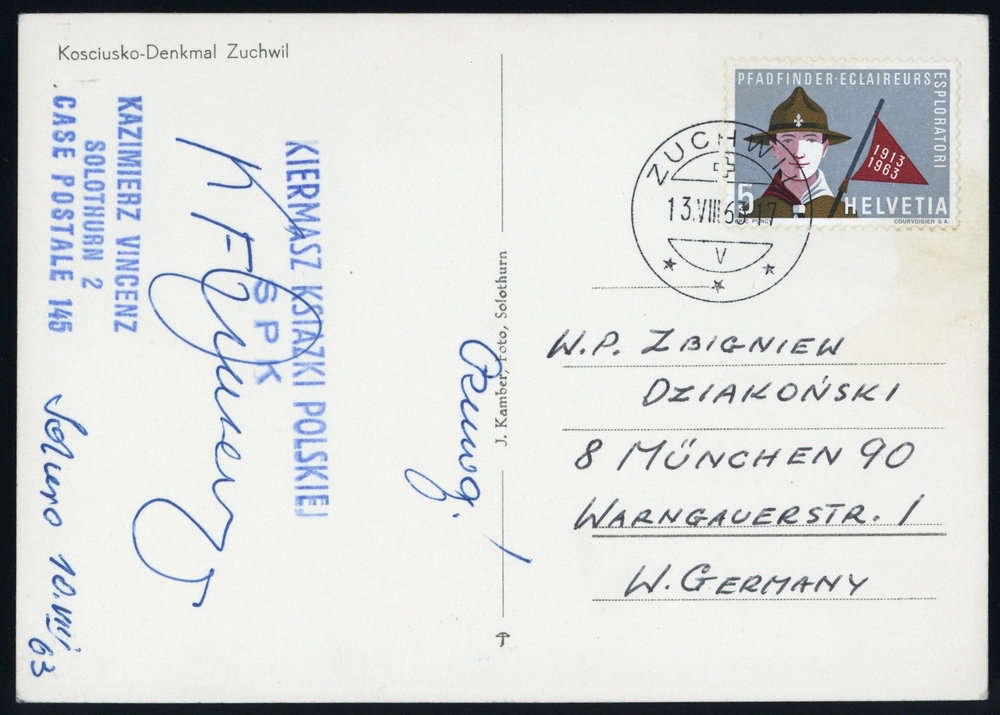 Kosciusko-Denkmal Zuchwil
KAZIMIERZ VINCENZ
SOLOTHURN 2
CASE POSTALE 145
KIERMASZ KSIAZKI POLSKIEJ
SPK
10.VIII
63
J. Kamber, Foto, Solothurn
PFADFINDER·ECLAIREURS
ESPLORATORI
1913
1963
5
HELVETIA
COURVOISIER S.A.
ZUCHWIL
13.VIII.63-17
V
W.P. ZBIGNIEW
DZIAKOŃSKI
8 MÜNCHEN 90
WARNGAUERSTR. 1
W. GERMANY